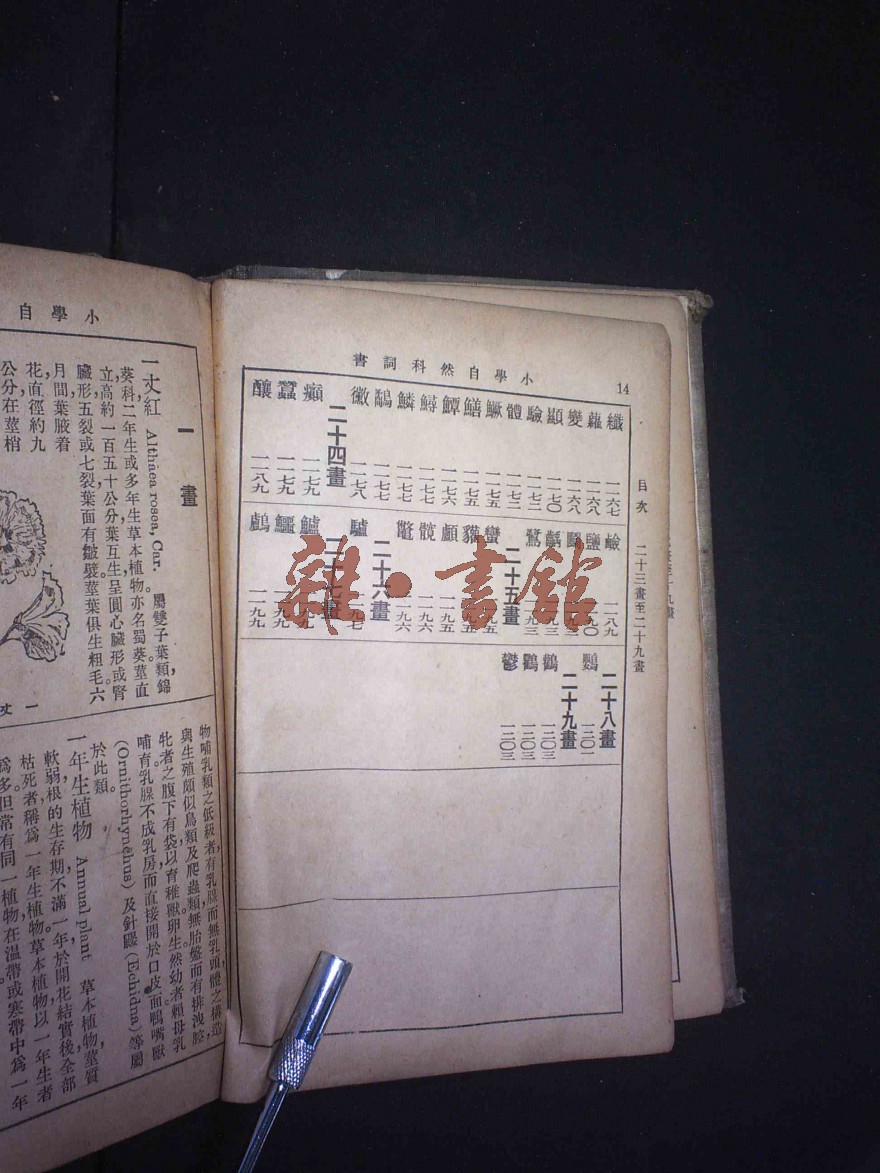 小學自然科詞書
14
目次 二十三畫至二十九畫
纖 一一六七
蘿 一一六八
變 一一六八
顯 一一七〇
驗 一一七二
體 一一七三
鱖 一一七五
鱔 一一七五
鱏 一一七六
鱘 一一七七
鱗 一一七七
鷸 一一七七
黴 一一七八
二十四畫
癲 一一七九
蠶 一一七九
釀 一一八九
鹼 一一八九
鹽
鷺
二十五畫
蠻
顱
髖 一一九六
鼈 一一九六
二十六畫
驢
二十七畫
鱸
鱷
鸕 一一九九
二十八畫
鸚 一二〇一
二十九畫
鸛 一二〇三
鸜 一二〇三
鬱 一二〇三
雜·書館
小學自
一畫
一丈紅 Althaea rosea, Car. 屬雙子葉類，錦
葵科二年生或多年生草本植物亦名蜀葵莖直
立高約一百五十公分葉互生呈圓心臟形或腎
臟形五裂或七裂葉面有皺襞莖葉俱生粗毛六
月間葉腋着
花直徑約九
公分在莖梢
一丈
物哺乳類之低級者，有乳腺而無乳頭，體之構造，
與生殖頗似鳥類及爬蟲類無胎盤而有排洩腔，
牝者之腹下有袋以育稚獸卵生然幼者賴母乳
哺育乳腺不成乳房而直接開於口皮面鴨嘴獸
(Ornithorhynchus) 及針鼹 (Echidna) 等屬
於此類。
一年生植物 Annual plant 草本植物莖質
軟弱，根的生存期不滿一年，於開花結實後全部
枯死者，稱爲一年生植物。草本植物以一年生者
爲多，但常有同一植物，在溫帶或寒帶中爲一年